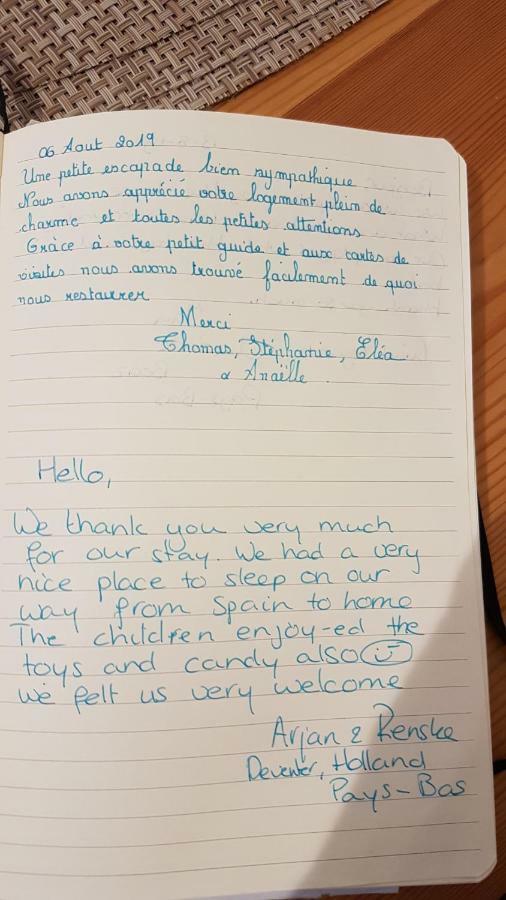 06 Aout 2019
Une petite escapade bien sympathique
Nous avons apprécié votre logement plein de
charme et toutes les petites attentions
Grâce à votre petit guide et aux cartes de
visites nous avons trouvé facilement de quoi
nous restaurer
Merci
Thomas, Stéphanie, Eléa
& Anaëlle.
Hello,
We thank you very much
for our stay. We had a very
nice place to sleep on our
way from Spain to home
The children enjoy-ed the
toys and candy also
we felt us very welcome
Arjan & Renske
Deventer, Holland
Pays-Bas